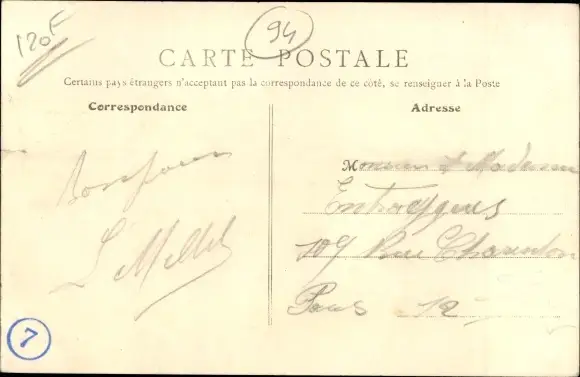 120F
94
CARTE POSTALE
Certains pays étrangers n'acceptant pas la correspondance de ce côté, se renseigner à la Poste
Correspondance
Adresse
Bonjour
Monsieur & Madame
Entraygues
Rue Charenton
Paris 12
7